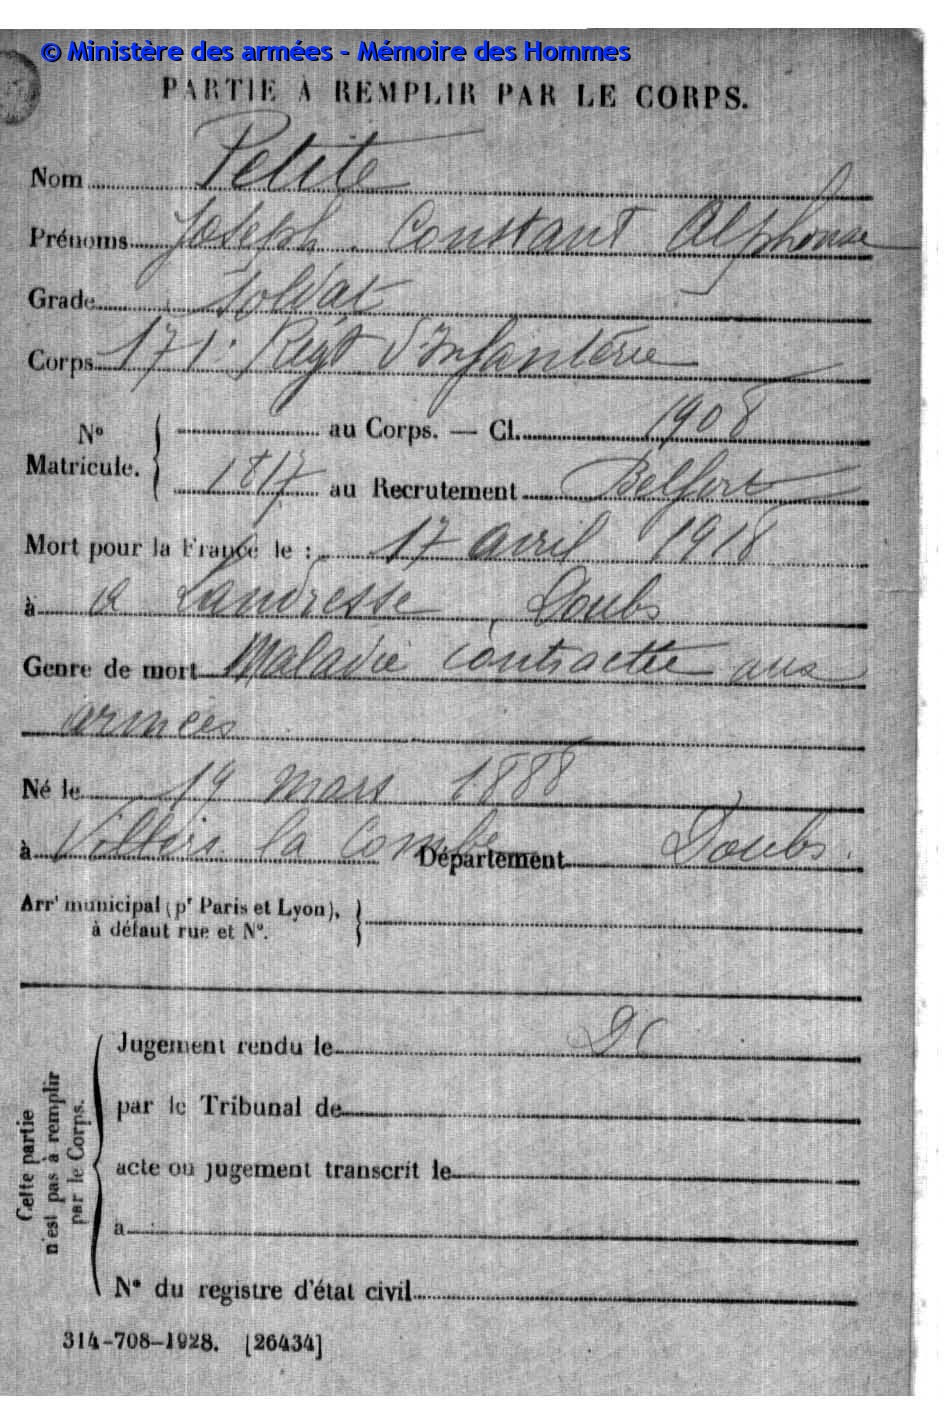 © Ministère des armées - Mémoire des Hommes
PARTIE À REMPLIR PAR LE CORPS.
Nom Petite
Prénoms Joseph. Constant Alphonse
Grade Soldat
Corps 171e Regt d'Infanterie
No Matricule. { au Corps. — Cl. 1908
1817 au Recrutement Belfort
Mort pour la France le : 17 avril 1918
à a Landresse, Doubs
Genre de mort Maladie contractée aux
armées
Né le 19 mars 1888
à Villers la Combe Département Doubs.
Arrt municipal (pr Paris et Lyon),
à défaut rue et No. }
Cette partie
n'est pas à remplir
par le Corps.
Jugement rendu le
par le Tribunal de
acte ou jugement transcrit le
à
No du registre d'état civil
314-708-1928. [26434]